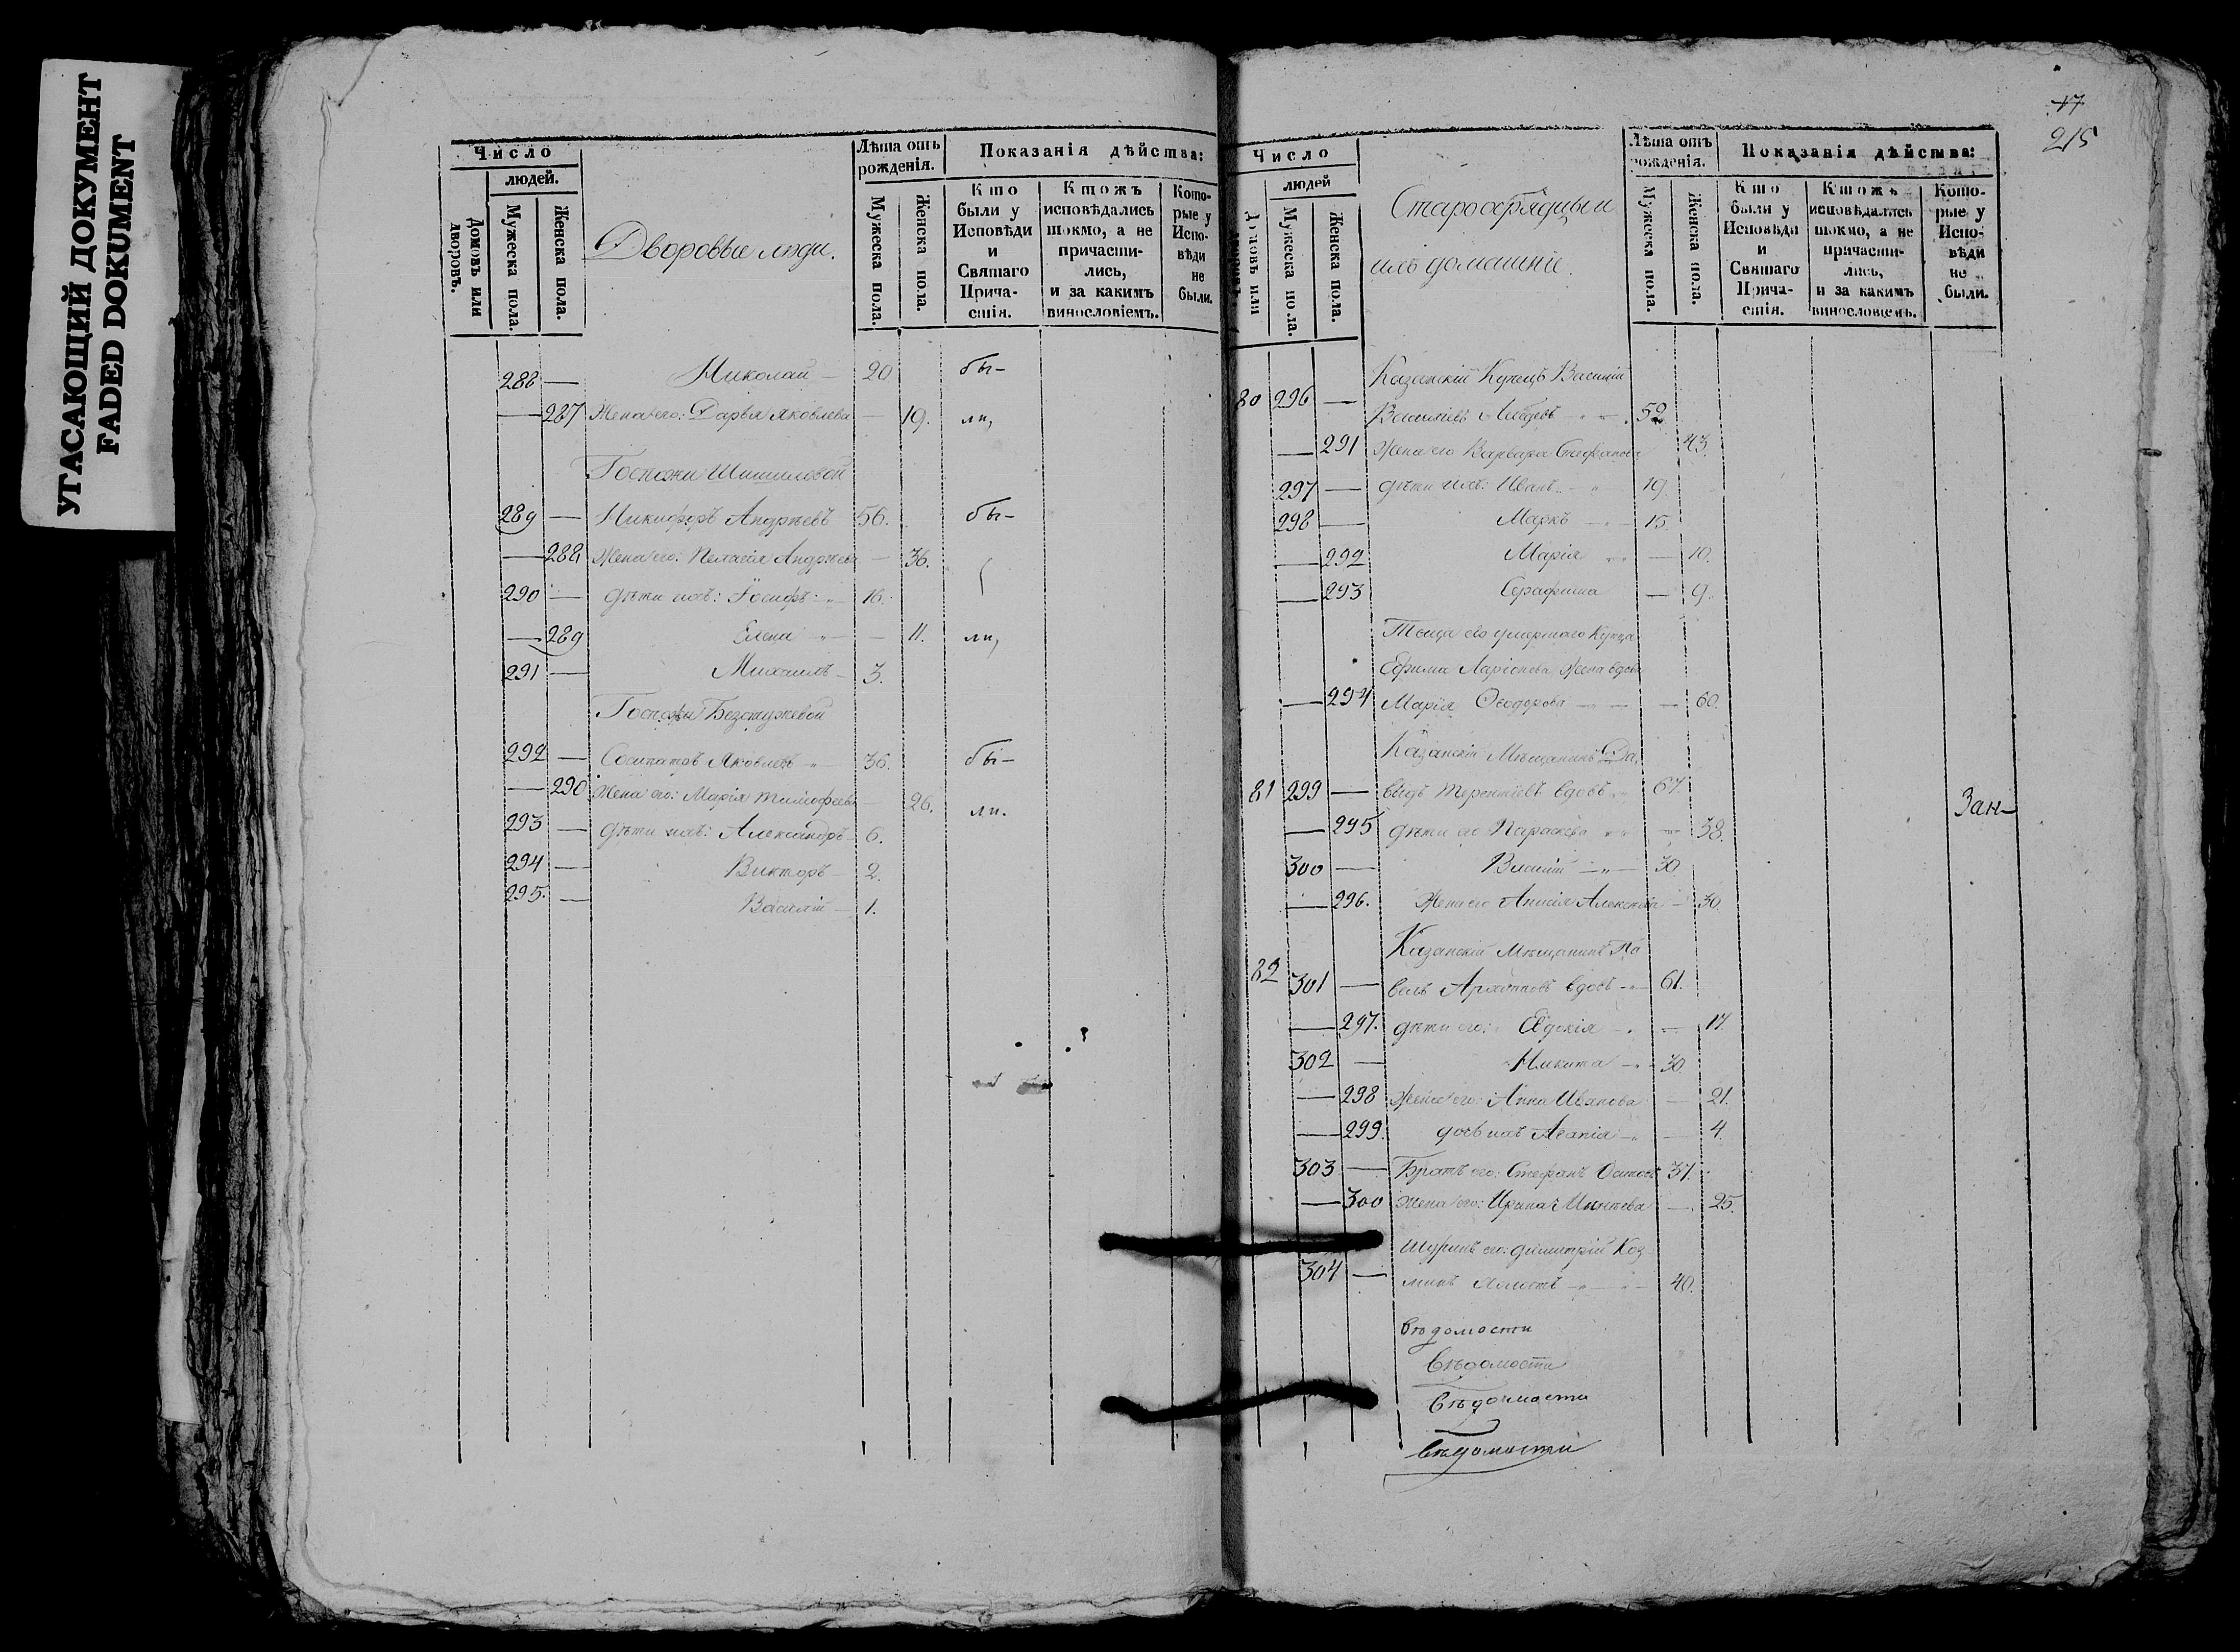 УГАСАЮЩИЙ ДОКУМЕНТ
FADED DOKUMENT
Число
людей.
Домовъ или дворовъ.
Мужеска пола.
Женска пола.
Дворовые люди.
Лѣта отъ рожденія.
Мужеска пола.
Женска пола.
Показанія дѣйства:
Кто были у Исповѣди и Святаго Прича-стія.
Ктожъ исповѣдались токмо, а не причасти-лись, и за какимъ винословіемъ.
Кото-рые у Испо-вѣди не были.
288 — Николай — 20 бы-
— 287 Жена его: Дарья Яковлева — 19. ли,
Госпожи
289 — Никифоръ Андрѣевъ 56. бы-
— 288 Жена его: Пелагія Андрѣева — 36.
290 — дѣти ихъ: Іосифъ 16.
— 289 Елена — 11. ли,
291 — Михаилъ — 3.
Госпожи Безстужевой
292 — Сосипатръ Яковлевъ 36. бы-
— 290 Жена его: Марія Тимофеева 26. ли.
293 — дѣти ихъ: Александръ 6.
294 — Викторъ — 2.
295. — Василій — 1.
17
215
Число
людей
Домовъ или дворовъ
Мужеска пола.
Женска пола.
Старообрядцы и
ихъ домашніе.
Лѣта отъ рожденія.
Мужеска пола.
Женска пола.
Показанія дѣйства:
Кто были у Исповѣди и Святаго Прича-стія.
Ктожъ исповѣдались токмо, а не причасти-лись, и за какимъ винословіемъ.
Кото-рые у Испо-вѣди не были.
Казанскій Купецъ Василій
80 296 — Васильевъ 52
— 291 Жена его Варвара Стефанова 43.
297 — дѣти ихъ: Иванъ 19.
298 — Маркъ — 15.
— 292 Марія — 10.
— 293 Серафима — 9.
Теща его умершаго Купца
Ефима Ларіонова Жена вдова
— 294 Марія Ѳеодорова — 60.
Казанскій Мѣщанинъ Да
81 299 — видъ Терентіевъ вдовъ 67. Зан-
— 295 дѣти его Параскева — 38.
300 — Василій — 30.
— 296. Жена его Анисія Алексѣева — 30.
Казанскій Мѣщанинъ Па
82 301 — велъ Архиповъ вдовъ 61.
— 297. дѣти его: Евдокія — 17.
302 — Никита — 30.
— 298 Жена его: Анна Иванова — 21.
— 299. дочь ихъ Агапія — 4.
303 — Братъ его: Стефанъ 31.
— 300 Жена его: Ирина — 25.
Шуринъ его: Димитрій Коз
304 — минъ 40.
вѣдомости
вѣдомости
вѣдомости
вѣдомости